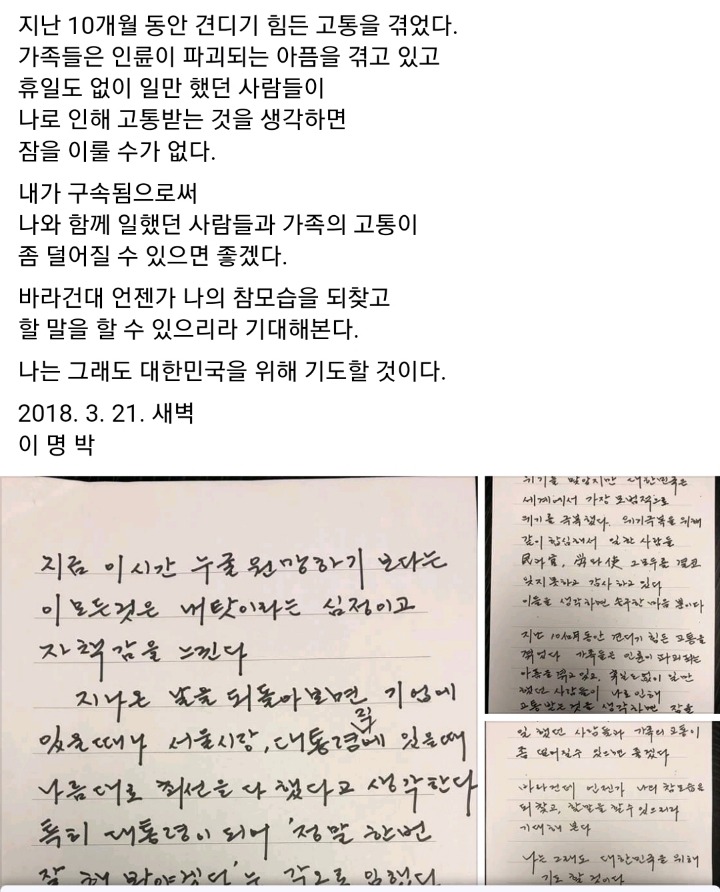 지난 10개월 동안 견디기 힘든 고통을 겪었다.
가족들은 인륜이 파괴되는 아픔을 겪고 있고
휴일도 없이 일만 했던 사람들이
나로 인해 고통받는 것을 생각하면
잠을 이룰 수가 없다.
내가 구속됨으로써
나와 함께 일했던 사람들과 가족의 고통이
좀 덜어질 수 있으면 좋겠다.
바라건대 언젠가 나의 참모습을 되찾고
할 말을 할 수 있으리라 기대해본다.
나는 그래도 대한민국을 위해 기도할 것이다.
2018. 3. 21. 새벽
이 명 박
지금 이 시간 누굴 원망하기 보다는
이 모든것은 내 탓이라는 심정이고
자책감을 느낀다
지나온 날을 되돌아보면 기업에
있을때나 서울시장, 대통령직에 있을때
나름대로 최선을 다 했다고 생각한다
특히 대통령이 되어 '정말 한번
잘 해 봐야겠다'는 각오로 임했다
위기를 맞았지만 대한민국은
세계에서 가장 모범적으로
위기를 극복했다. 위기극복을 위해
같이 합심해서 일한 사람들
民과 官, 勞와 使 그 모두를 결코
잊지 못하고 감사하고 있다
이들을 생각하면 송구한 마음 뿐이다
지난 10개월 동안 견디기 힘든 고통을
겪었다 가족들은 인륜이 파괴되는
아픔을 겪고 있고, 휴일도 없이 일만
했던 사람들이 나로 인해
고통받는 것을 생각하면 잠을
일 했던 사람들과 가족의 고통이
좀 덜어질 수 있으면 좋겠다
바라건대 언젠가 나의 참모습을
되찾고, 할말을 할 수 있으리라
기대해 본다
나는 그래도 대한민국을 위해
기도 할 것이다